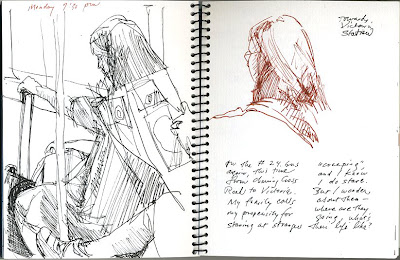 Monday 9:30 pm
Towards
Victoria
Station
On the # 24 bus
again, this time
from Charing Cross
Road to Victoria.
My family calls
my propensity for
staring at strangers
"
and I know
I do stare.
But I wonder
about them —
where are they
going, what's
their life like?